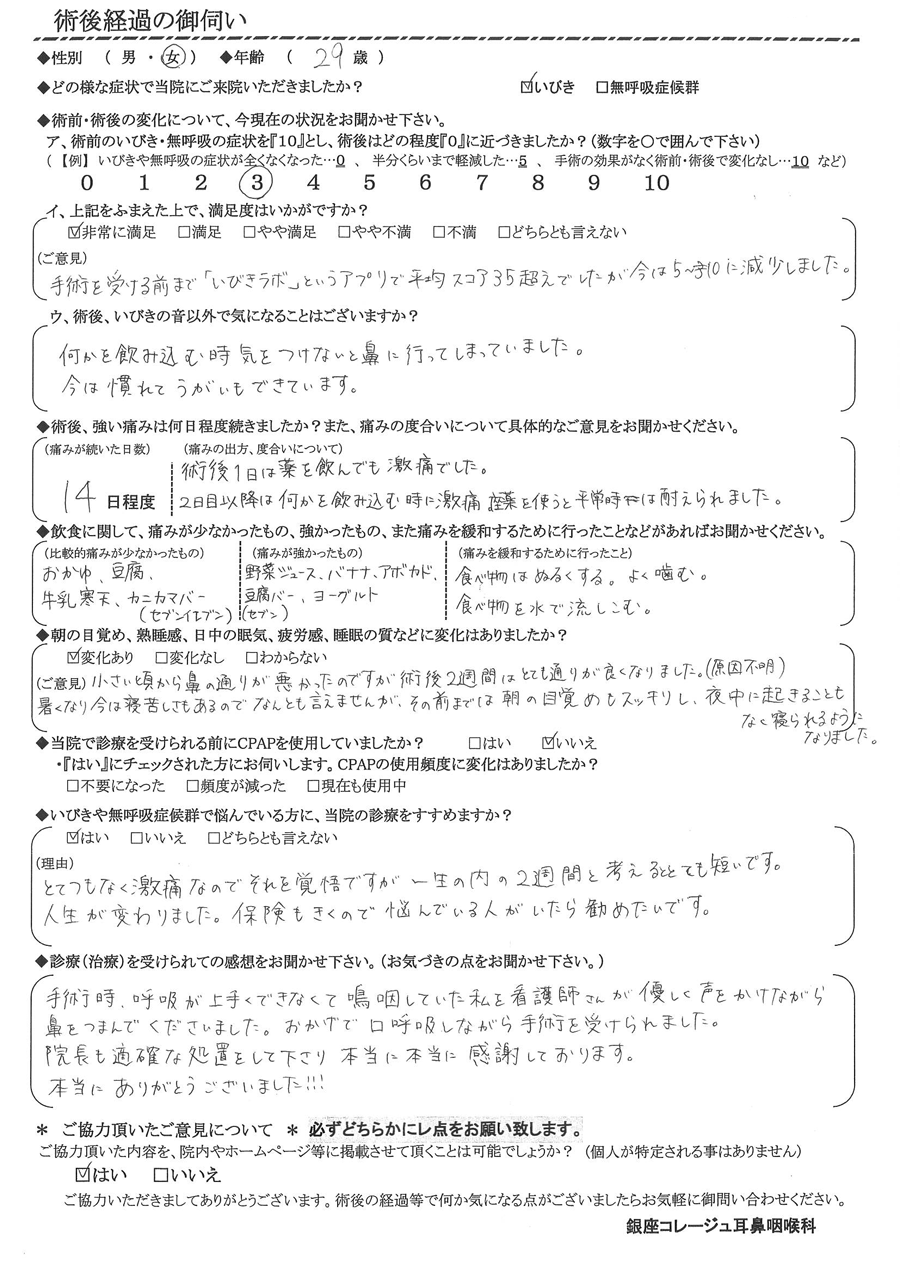 術後経過の御伺い
◆性別 ( 男 ・ 女 ) ◆年齢 ( 29 歳 )
◆どの様な症状で当院にご来院いただきましたか? ☑いびき □無呼吸症候群
◆術前・術後の変化について、今現在の状況をお聞かせ下さい。
ア、術前のいびき・無呼吸の症状を『10』とし、術後はどの程度『0』に近づきましたか?(数字を〇で囲んで下さい)
(【例】いびきや無呼吸の症状が全くなくなった…0 、 半分くらいまで軽減した…5 、 手術の効果がなく術前・術後で変化なし…10 など)
0 1 2 3 4 5 6 7 8 9 10
イ、上記をふまえた上で、満足度はいかがですか?
☑非常に満足 □満足 □やや満足 □やや不満 □不満 □どちらとも言えない
(ご意見)
手術を受ける前まで「いびきラボ」というアプリで平均スコア35超えでしたが今は5〜10に減少しました。
ウ、術後、いびきの音以外で気になることはございますか?
何かを飲み込む時気をつけないと鼻に行ってしまっていました。
今は慣れてうがいもできています。
◆術後、強い痛みは何日程度続きましたか?また、痛みの度合いについて具体的なご意見をお聞かせください。
(痛みが続いた日数) (痛みの出方、度合いについて)
術後1日は薬を飲んでも激痛でした。
14 日程度 2日目以降は何かを飲み込む時に激痛 座薬を使うと平常時は耐えられました。
◆飲食に関して、痛みが少なかったもの、強かったもの、また痛みを緩和するために行ったことなどがあればお聞かせください。
(比較的痛みが少なかったもの) (痛みが強かったもの) (痛みを緩和するために行ったこと)
おかゆ、豆腐、 野菜ジュース、バナナ、アボカド、 食べ物はぬるくする。よく噛む。
牛乳寒天、カニカマバー 豆腐バー、ヨーグルト 食べ物を水で流しこむ。
(セブンイレブン) (セブン)
◆朝の目覚め、熟睡感、日中の眠気、疲労感、睡眠の質などに変化はありましたか?
☑変化あり □変化なし □わからない
(ご意見) 小さい頃から鼻の通りが悪かったのですが術後2週間はとても通りが良くなりました。(原因不明)
暑くなり今は寝苦しさもあるのでなんとも言えませんが、その前までは朝の目覚めもスッキリし、夜中に起きることも
なく寝られるように
なりました。
◆当院で診療を受けられる前にCPAPを使用していましたか? □はい ☑いいえ
・『はい』にチェックされた方にお伺いします。CPAPの使用頻度に変化はありましたか?
□不要になった □頻度が減った □現在も使用中
◆いびきや無呼吸症候群で悩んでいる方に、当院の診療をすすめますか?
☑はい □いいえ □どちらとも言えない
(理由)
とてつもなく激痛なのでそれを覚悟ですが一生の内の2週間と考えるととても短いです。
人生が変わりました。保険もきくので悩んでいる人がいたら勧めたいです。
◆診療(治療)を受けられての感想をお聞かせ下さい。(お気づきの点をお聞かせ下さい。)
手術時、呼吸が上手くできなくて嗚咽していた私を看護師さんが優しく声をかけながら
鼻をつまんでくださいました。おかげで口呼吸しながら手術を受けられました。
院長も適確な処置をして下さり本当に本当に感謝しております。
本当にありがとうございました!!!
* ご協力頂いたご意見について * 必ずどちらかにレ点をお願い致します。
ご協力頂いた内容を、院内やホームページ等に掲載させて頂くことは可能でしょうか? (個人が特定される事はありません)
☑はい □いいえ
ご協力いただきましてありがとうございます。術後の経過等で何か気になる点がございましたらお気軽に御問い合わせください。
銀座コレージュ耳鼻咽喉科